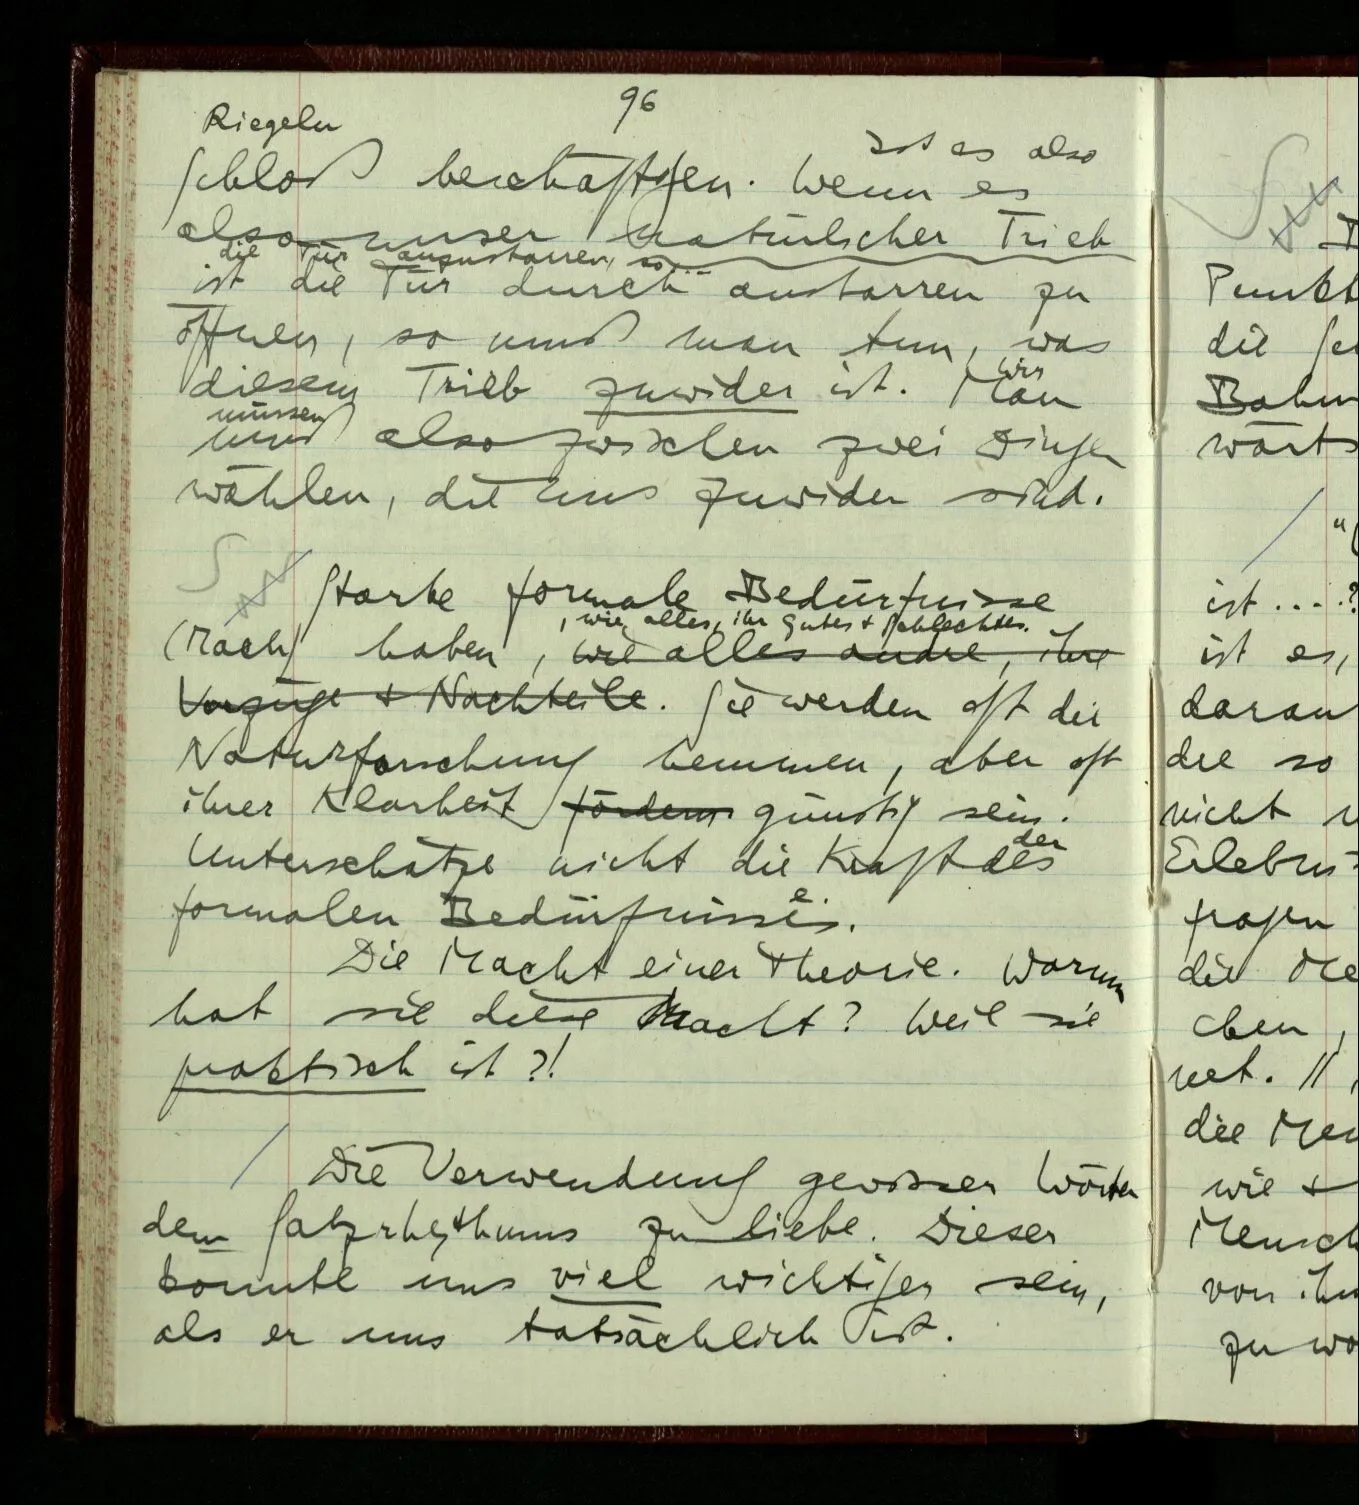 96
Riegeln
Schloß beschäftigen. Wenn es
ist es also
also unser natürlicher Trieb
die Tür anzustarren, so...
ist die Tür durch anstarren zu
öffnen, so muß man tun, was
diesem Trieb zuwider ist. Man
wir
müssen
muß also zwischen zwei Dingen
wählen, die uns zuwider sind.
S
Starke formale Bedürfnisse
, wie alles, ihr Gutes + Schlechtes.
(Mach) haben, wie alles andre, ihre
Vorzüge + Nachteile. Sie werden oft die
Naturforschung hemmen, aber oft
ihrer Klarheit fördern günstig sein.
der
Unterschätze nicht die Kraft des
formalen Bedürfnisses.
e
Die Macht einer Theorie. Warum
hat sie diese Macht? Weil sie
praktisch ist?!
/ Die Verwendung gewisser Wörter
dem Satzrhythmus zu liebe. Dieser
könnte uns viel wichtiger sein,
als er uns tatsächlich ist.
S
Punkt
die
Bahn
wärts
/
ist ....?
ist es,
daran
die so
nicht
Erlebnis
fragen
die Me
chen,
net. //
die Men
wie +
Mensch
von ihn
zu wo